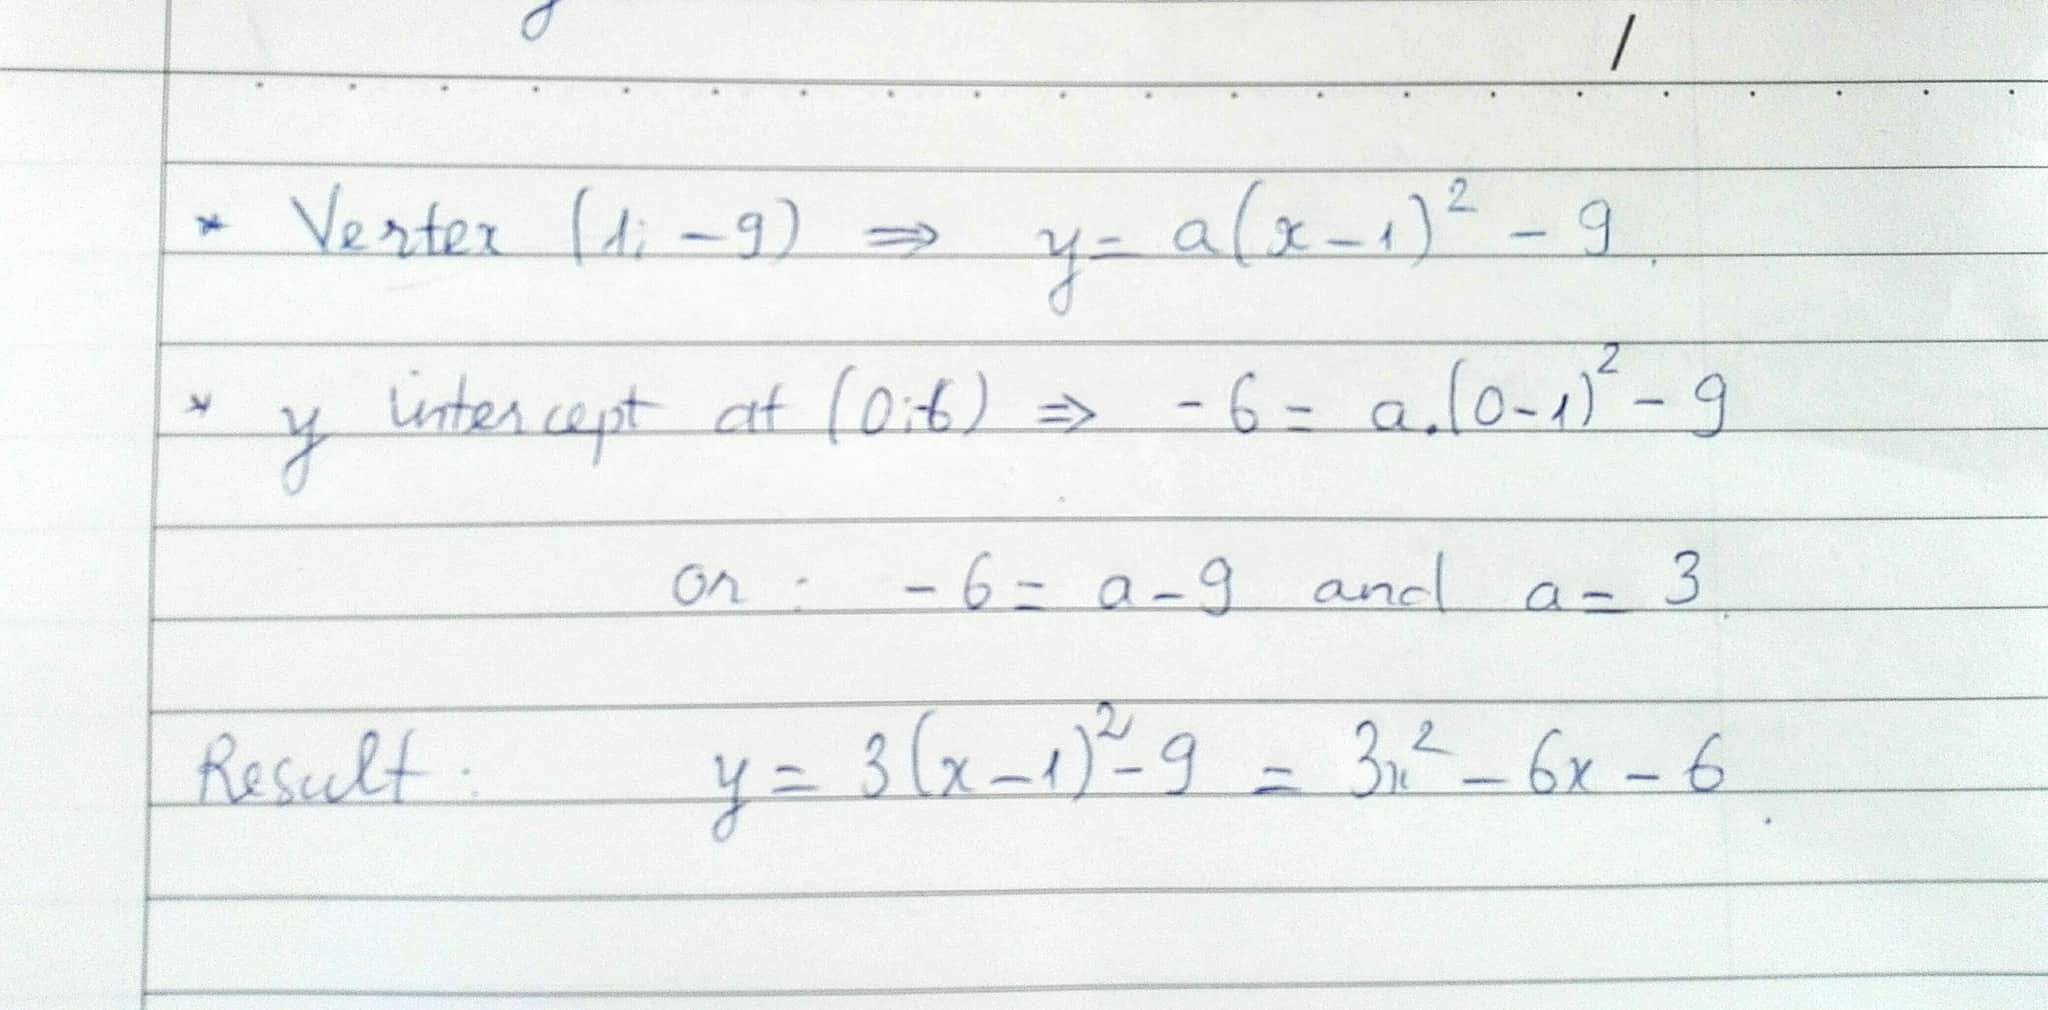 * Vertex (1; -9) ⇒ y = a(x-1)² - 9.
* y intercept at (0;-6) ⇒ -6 = a.(0-1)² - 9
or : -6 = a-9 and a = 3.
Result : y = 3(x-1)² - 9 = 3x² - 6x - 6.